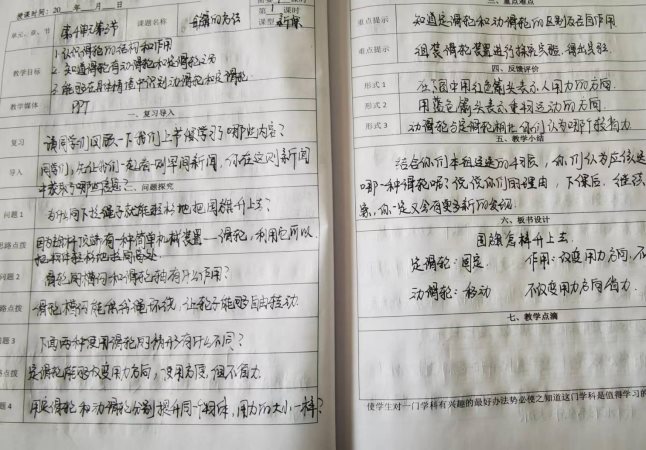 授课时间:20 年 月 日 第1课时
单元、章、节 第4单元第3节 课题名称 课型 新课
教学目标
1.认识滑轮的结构和作用
2.知道滑轮有动滑轮和定滑轮之分
3.能够在具体情境中识别动滑轮和定滑轮
教学媒体 PPT
一、复习导入
复习 请同学们回顾一下我们上节课学习了哪些内容?
导入 同学们,先让我们一起看一则军闻新闻,你在这则新闻
中获取了哪些信息?
二、问题探究
问题1 为什么向下拉绳子就能轻松地把国旗升上去?
思路点拨 因为旗杆顶端有一种简单机械装置——滑轮,利用它可以
把物体轻松地拉向高处
问题2 滑轮周横沟和滑轮轴有什么作用?
路点拨 滑轮横沟能使绳子缠绕,让轮子能够自由转动.
题3 下面两种使用滑轮的情形有什么不同?
路点拨 定滑轮能够改变用力方向,使用方便,但不省力.
题4 用定滑轮和动滑轮分别提升同一个物体,用力的大小一样?
三、重点难点
重点提示 知道定滑轮和动滑轮的区别及各自作用
重点提示 组装滑轮装置进行探究实验,得出结论.
四、反馈评价
形式1 在下图中用红色箭头表示人用力的方向.
形式2 用蓝色箭头表示重物运动的方向.
形式3 动滑轮与定滑轮相比你们认为哪个较省力.
五、教学小结
结合你们本组连来的初展,你们认为应该是
哪一种滑轮呢?说说你们的理由,下课后,继续
索,你一定又会有更多新的发现.
六、板书设计
国旗怎样升上去.
定滑轮:固定 作用:改变用力方向,不
动滑轮:移动 不改变用力方向省力.
七、教学点滴
使学生对一门学科有兴趣的最好办法势必使之知道这门学科是值得学习的